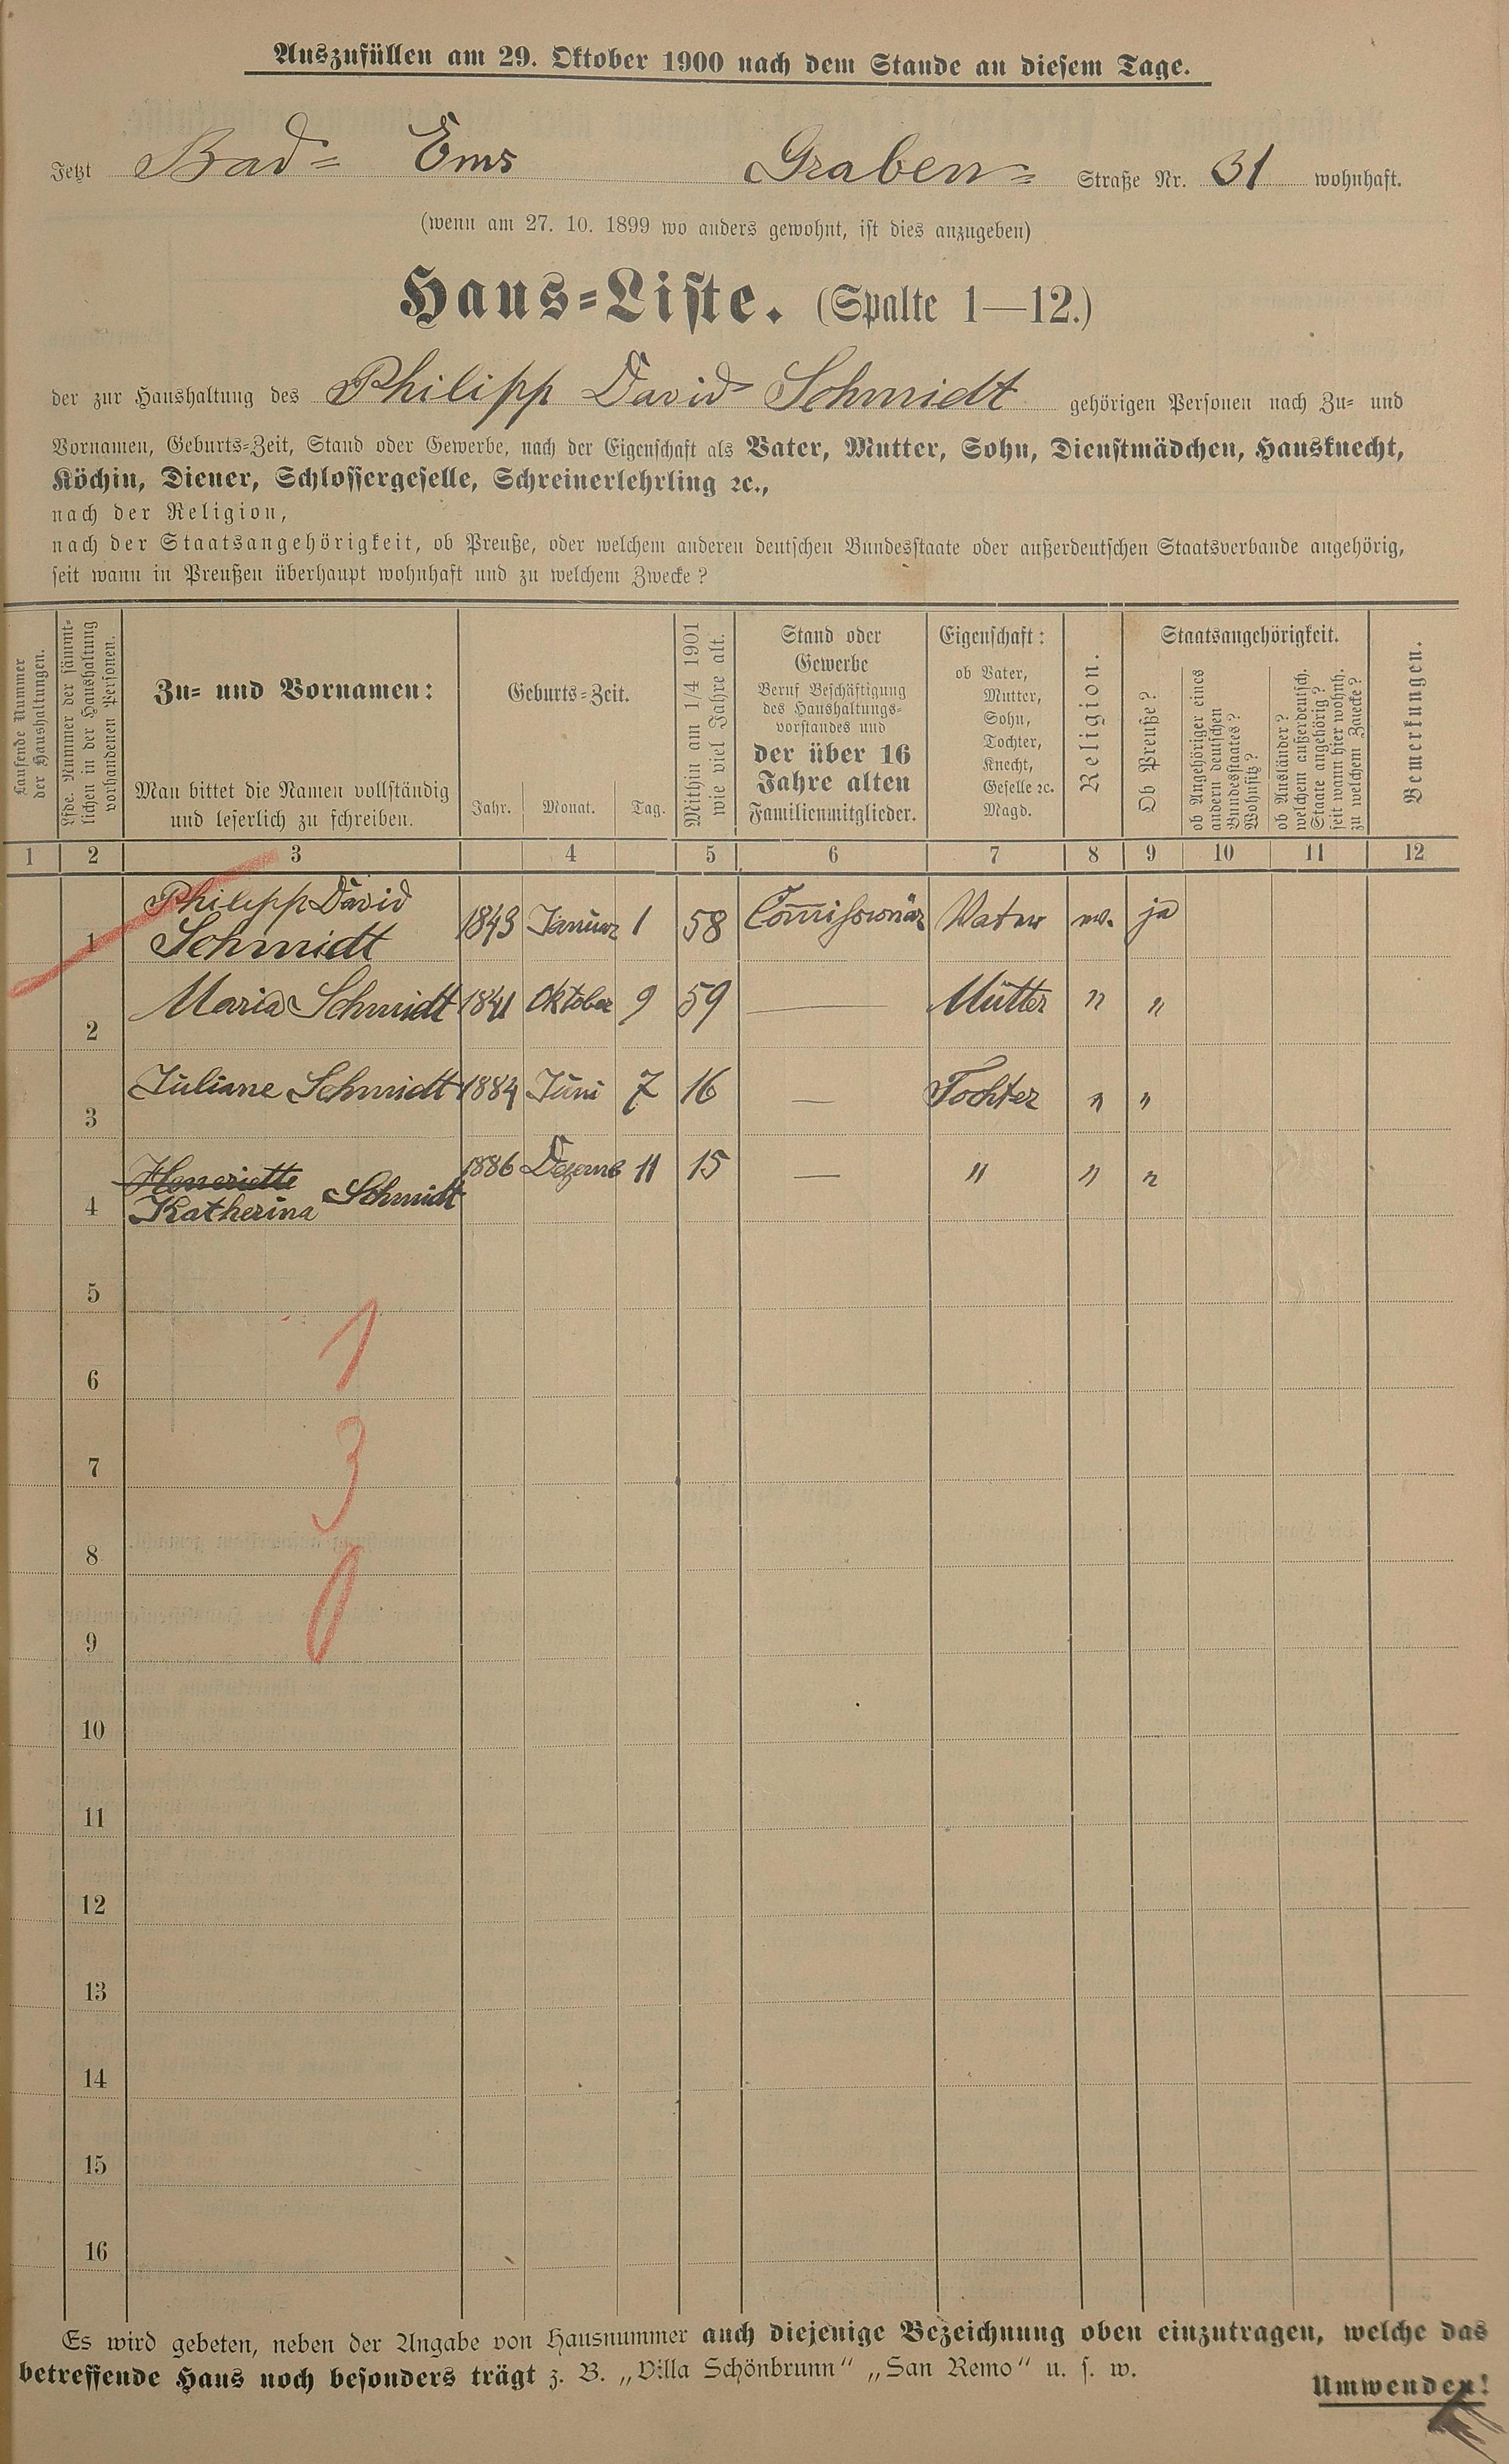 Auszufüllen am 29. Oktober 1900 nach dem Stande an diesem Tage.
Jetzt Bad= Ems Graben= Straße Nr. 31 wohnhaft.
(wenn am 27. 10. 1899 wo anders gewohnt, ist dies anzugeben)
Haus=Liste. (Spalte 1—12.)
der zur Haushaltung des Philipp David Schmidt gehörigen Personen nach Zu= und
Vornamen, Geburts=Zeit, Stand oder Gewerbe, nach der Eigenschaft als Vater, Mutter, Sohn, Dienstmädchen, Hausknecht,
Köchin, Diener, Schlossergeselle, Schreinerlehrling ꝛc.,
nach der Religion,
nach der Staatsangehörigkeit, ob Preuße, oder welchem anderen deutschen Bundesstaate oder außerdeutschen Staatsverbande angehörig,
seit wann in Preußen überhaupt wohnhaft und zu welchem Zwecke?
Laufende Nummer
der Haushaltungen.
Lfde. Nummer der sämmt=
lichen in der Haushaltung
vorhandenen Personen.
Zu= und Vornamen:
Man bittet die Namen vollständig
und leserlich zu schreiben.
Geburts=Zeit.
Jahr. Monat. Tag.
Mithin am 1/4 1901
wie viel Jahre alt.
Stand oder
Gewerbe
Beruf Beschäftigung
des Haushaltungs=
vorstandes und
der über 16
Jahre alten
Familienmitglieder.
Eigenschaft:
ob Vater,
Mutter,
Sohn,
Tochter,
Knecht,
Geselle ꝛc.
Magd.
Religion.
Staatsangehörigkeit.
Ob Preuße?
ob Angehöriger eines
andern deutschen
Bundesstaates?
Wohnsitz?
ob Ausländer?
welchem außerdeutsch.
Staate angehörig?
seit wann hier wohnh.
zu welchem Zwecke?
Bemerkungen.
1 2 3 4 5 6 7 8 9 10 11 12
Philipp David
1 Schmidt 1843 Januar 1 58 Commissionär Vater ev. ja
2 Maria Schmidt 1841 Oktober 9 59 — Mutter " "
3 Juliane Schmidt 1884 Juni 7 16 — Tochter " "
Henriette 1886 Dezemb 11 15 — " " "
4 Katherina Schmidt
5
1
6
7
3
8
0
9
10
11
12
13
14
15
16
Es wird gebeten, neben der Angabe von Hausnummer auch diejenige Bezeichnung oben einzutragen, welche das
betreffende Haus noch besonders trägt z. B. „Villa Schönbrunn“ „San Remo“ u. s. w.
Umwenden!